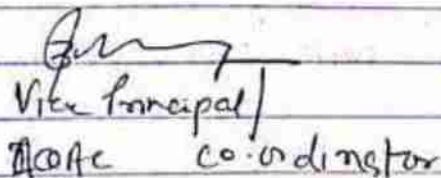 Vice Principal/
co-ordinator